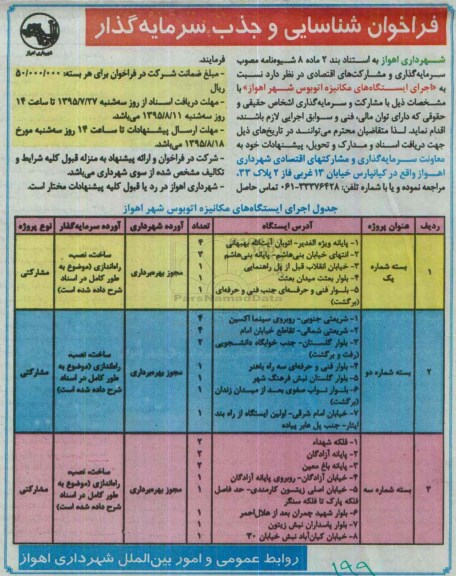 فراخوان شناسایی و جذب سرمایه‌گذار
شهرداری اهواز
شهرداری اهواز به استناد بند ۲ ماده ۸ شیوه‌نامه مصوب
سرمایه‌گذاری و مشارکت‌های اقتصادی در نظر دارد نسبت
به «اجرای ایستگاه‌های مکانیزه اتوبوس شهر اهواز» با
مشخصات ذیل با مشارکت و سرمایه‌گذاری اشخاص حقیقی و
حقوقی که دارای توان مالی، فنی و سوابق اجرایی لازم باشند،
اقدام نماید. لذا متقاضیان محترم می‌توانند در تاریخ‌های ذیل
جهت دریافت اسناد و مدارک و تحویل، پیشنهادات خود به
معاونت سرمایه‌گذاری و مشارکتهای اقتصادی شهرداری
اهواز واقع در کیانپارس خیابان ۱۳ غربی فاز ۲ پلاک ۳۳،
مراجعه نموده و یا با شماره تلفن: ۳۳۳۷۶۴۲۸-۰۶۱ تماس حاصل
فرمایند.
- مبلغ ضمانت شرکت در فراخوان برای هر بسته: ۵۰/۰۰۰/۰۰۰
ریال
- مهلت دریافت اسناد از روز سه‌شنبه ۱۳۹۵/۷/۲۷ تا ساعت ۱۴
روز سه‌شنبه ۱۳۹۵/۸/۱۱ می‌باشد.
- مهلت ارسال پیشنهادات تا ساعت ۱۴ روز سه‌شنبه مورخ
۱۳۹۵/۸/۱۸ می‌باشد.
- شرکت در فراخوان و ارائه پیشنهاد به منزله قبول کلیه شرایط و
تکالیف مشخص شده از سوی شهرداری می‌باشد.
- شهرداری اهواز در رد یا قبول کلیه پیشنهادات مختار است.
جدول اجرای ایستگاه‌های مکانیزه اتوبوس شهر اهواز
ردیف عنوان پروژه آدرس ایستگاه تعداد آورده شهرداری آورده سرمایه‌گذار نوع پروژه
۱
بسته شماره
یک
۱- پایانه ویژه الغدیر- اتوبان آیت‌الله بهبهانی ۴
۲- انتهای خیابان بنی‌هاشم- پایانه بنی‌هاشم ۳
۳- خیابان انقلاب قبل از پل راهنمایی ۱
۴- بلوار بعثت میدان بعثت ۱
۵- بلوار فنی و حرفه‌ای جنب فنی و حرفه‌ای ۱
(برگشت)
مجوز بهره‌برداری
ساخت، نصب،
راه‌اندازی (موضوع به
طور کامل در اسناد
شرح داده شده است)
مشارکتی
ParsNamadData
۲
بسته شماره دو
۱- شریعتی جنوبی- روبروی سینما اکسین ۴
۲- شریعتی شمالی- تقاطع خیابان امام ۴
۳- بلوار گلستان- جنب خوابگاه دانشجویی ۲
(رفت و برگشت)
۴- بلوار فنی و حرفه‌ای سه راه باهنر ۱
۵- بلوار گلستان نبش فرهنگ شهر ۱
۶- بلوار نواب صفوی بعد از میدان زندان ۱
(برگشت)
۷- خیابان امام شرقی- اولین ایستگاه از راه بند ۱
ایثار- جنب پل عابر پیاده
مجوز بهره‌برداری
ساخت، نصب،
راه‌اندازی (موضوع به
طور کامل در اسناد
شرح داده شده است)
مشارکتی
۳
بسته شماره سه
۱- فلکه شهداء ۲
۲- پایانه آزادگان ۲
۳- پایانه باغ معین
۴- خیابان آزادگان- روبروی پایانه آزادگان ۱
۵- خیابان اصلی زیتون کارمندی- حد فاصل ۱
فلکه پارک تا فلکه سنگر
۶- بلوار شهید چمران بعد از هلال‌احمر ۱
۷- بلوار پاسداران نبش زیتون ۱
۸- خیابان کیان‌آباد نبش خیابان ۳۰ ۱
مجوز بهره‌برداری
ساخت، نصب،
راه‌اندازی (موضوع به
طور کامل در اسناد
شرح داده شده است)
مشارکتی
روابط عمومی و امور بین‌الملل شهرداری اهواز
۱۹۹